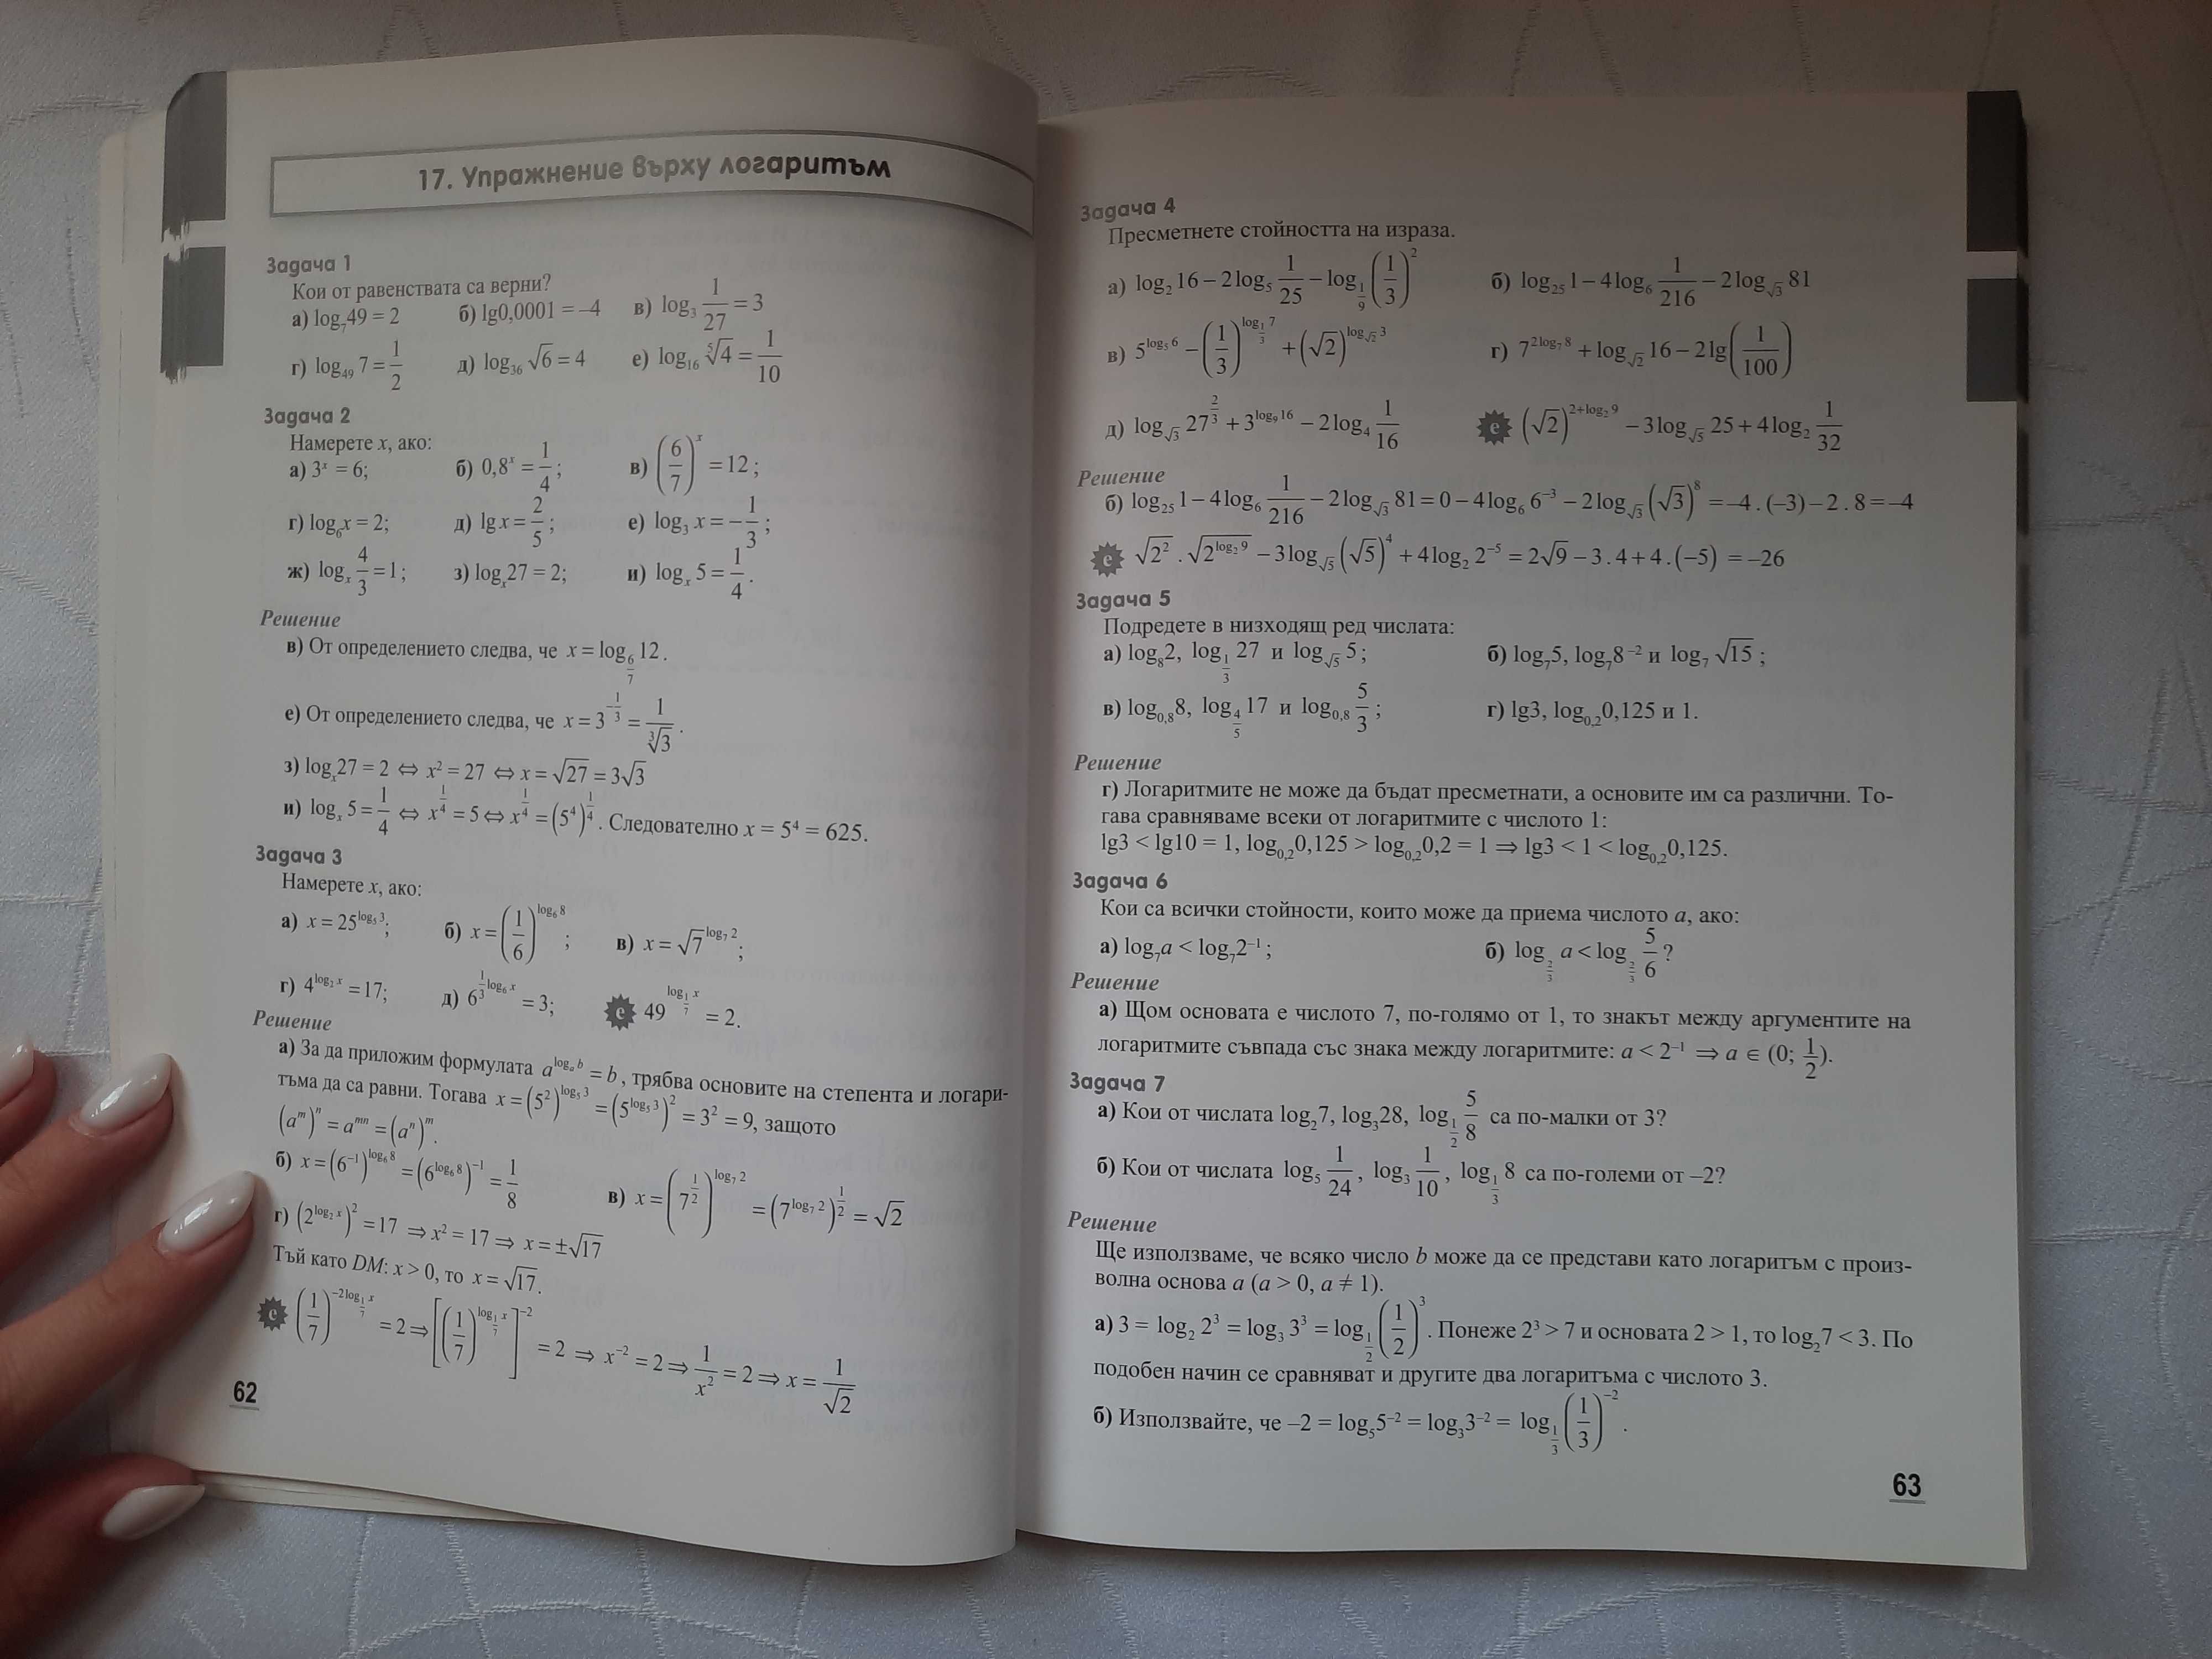 17. Упражнение върху логаритъм
Задача 1
Кои от равенствата са верни?
а) log₇49 = 2 б) lg0,0001 = –4 в) log₃ 1/27 = 3
г) log₄₉ 7 = 1/2 д) log₃₆ √6 = 4 е) log₁₆ ⁵√4 = 1/10
Задача 2
Намерете x, ако:
а) 3ˣ = 6; б) 0,8ˣ = 1/4; в) (6/7)ˣ = 12;
г) log₆x = 2; д) lg x = 2/5; е) log₃ x = –1/3;
ж) logₓ 4/3 = 1; з) logₓ27 = 2; и) logₓ 5 = 1/4.
Решение
в) От определението следва, че x = log_(6/7) 12.
е) От определението следва, че x = 3^(–1/3) = 1/³√3.
з) logₓ27 = 2 ⇔ x² = 27 ⇔ x = √27 = 3√3
и) logₓ 5 = 1/4 ⇔ x^(1/4) = 5 ⇔ x^(1/4) = (5⁴)^(1/4). Следователно x = 5⁴ = 625.
Задача 3
Намерете x, ако:
а) x = 25^(log₅ 3); б) x = (1/6)^(log₆ 8); в) x = √7^(log₇ 2);
г) 4^(log₂ x) = 17; д) 6^((1/3)log₆ x) = 3; е 49^(log_(1/7) x) = 2.
Решение
а) За да приложим формулата a^(logₐ b) = b, трябва основите на степента и логари-
тъма да са равни. Тогава x = (5²)^(log₅ 3) = (5^(log₅ 3))² = 3² = 9, защото
(aᵐ)ⁿ = aᵐⁿ = (aⁿ)ᵐ.
б) x = (6⁻¹)^(log₆ 8) = (6^(log₆ 8))⁻¹ = 1/8 в) x = (7^(1/2))^(log₇ 2) = (7^(log₇ 2))^(1/2) = √2
г) (2^(log₂ x))² = 17 ⇒ x² = 17 ⇒ x = ±√17
Тъй като DM: x > 0, то x = √17.
е (1/7)^(–2log_(1/7) x) = 2 ⇒ [(1/7)^(log_(1/7) x)]⁻² = 2 ⇒ x⁻² = 2 ⇒ 1/x² = 2 ⇒ x = 1/√2
62
Задача 4
Пресметнете стойността на израза.
а) log₂ 16 – 2log₅ 1/25 – log_(1/9) (1/3)² б) log₂₅ 1 – 4log₆ 1/216 – 2log_√3 81
в) 5^(log₅ 6) – (1/3)^(log_(1/3) 7) + (√2)^(log_√2 3) г) 7^(2log₇ 8) + log_√2 16 – 2lg(1/100)
д) log_√3 27^(2/3) + 3^(log₉ 16) – 2log₄ 1/16 е (√2)^(2+log₂ 9) – 3log_√5 25 + 4log₂ 1/32
Решение
б) log₂₅ 1 – 4log₆ 1/216 – 2log_√3 81 = 0 – 4log₆ 6⁻³ – 2log_√3 (√3)⁸ = –4 . (–3) – 2 . 8 = –4
е √2² . √2^(log₂ 9) – 3log_√5 (√5)⁴ + 4log₂ 2⁻⁵ = 2√9 – 3 . 4 + 4 . (–5) = –26
Задача 5
Подредете в низходящ ред числата:
а) log₈2, log_(1/3) 27 и log_√5 5; б) log₇5, log₇8⁻² и log₇ √15;
в) log₀,₈8, log_(4/5) 17 и log₀,₈ 5/3; г) lg3, log₀,₂0,125 и 1.
Решение
г) Логаритмите не може да бъдат пресметнати, а основите им са различни. То-
гава сравняваме всеки от логаритмите с числото 1:
lg3 < lg10 = 1, log₀,₂0,125 > log₀,₂0,2 = 1 ⇒ lg3 < 1 < log₀,₂0,125.
Задача 6
Кои са всички стойности, които може да приема числото a, ако:
а) log₇a < log₇2⁻¹; б) log_(2/3) a < log_(2/3) 5/6?
Решение
а) Щом основата е числото 7, по-голямо от 1, то знакът между аргументите на
логаритмите съвпада със знака между логаритмите: a < 2⁻¹ ⇒ a ∈ (0; 1/2).
Задача 7
а) Кои от числата log₂7, log₃28, log_(1/2) 5/8 са по-малки от 3?
б) Кои от числата log₅ 1/24, log₃ 1/10, log_(1/3) 8 са по-големи от –2?
Решение
Ще използваме, че всяко число b може да се представи като логаритъм с произ-
волна основа a (a > 0, a ≠ 1).
а) 3 = log₂ 2³ = log₃ 3³ = log_(1/2) (1/2)³. Понеже 2³ > 7 и основата 2 > 1, то log₂7 < 3. По
подобен начин се сравняват и другите два логаритъма с числото 3.
б) Използвайте, че –2 = log₅5⁻² = log₃3⁻² = log_(1/3) (1/3)⁻².
63